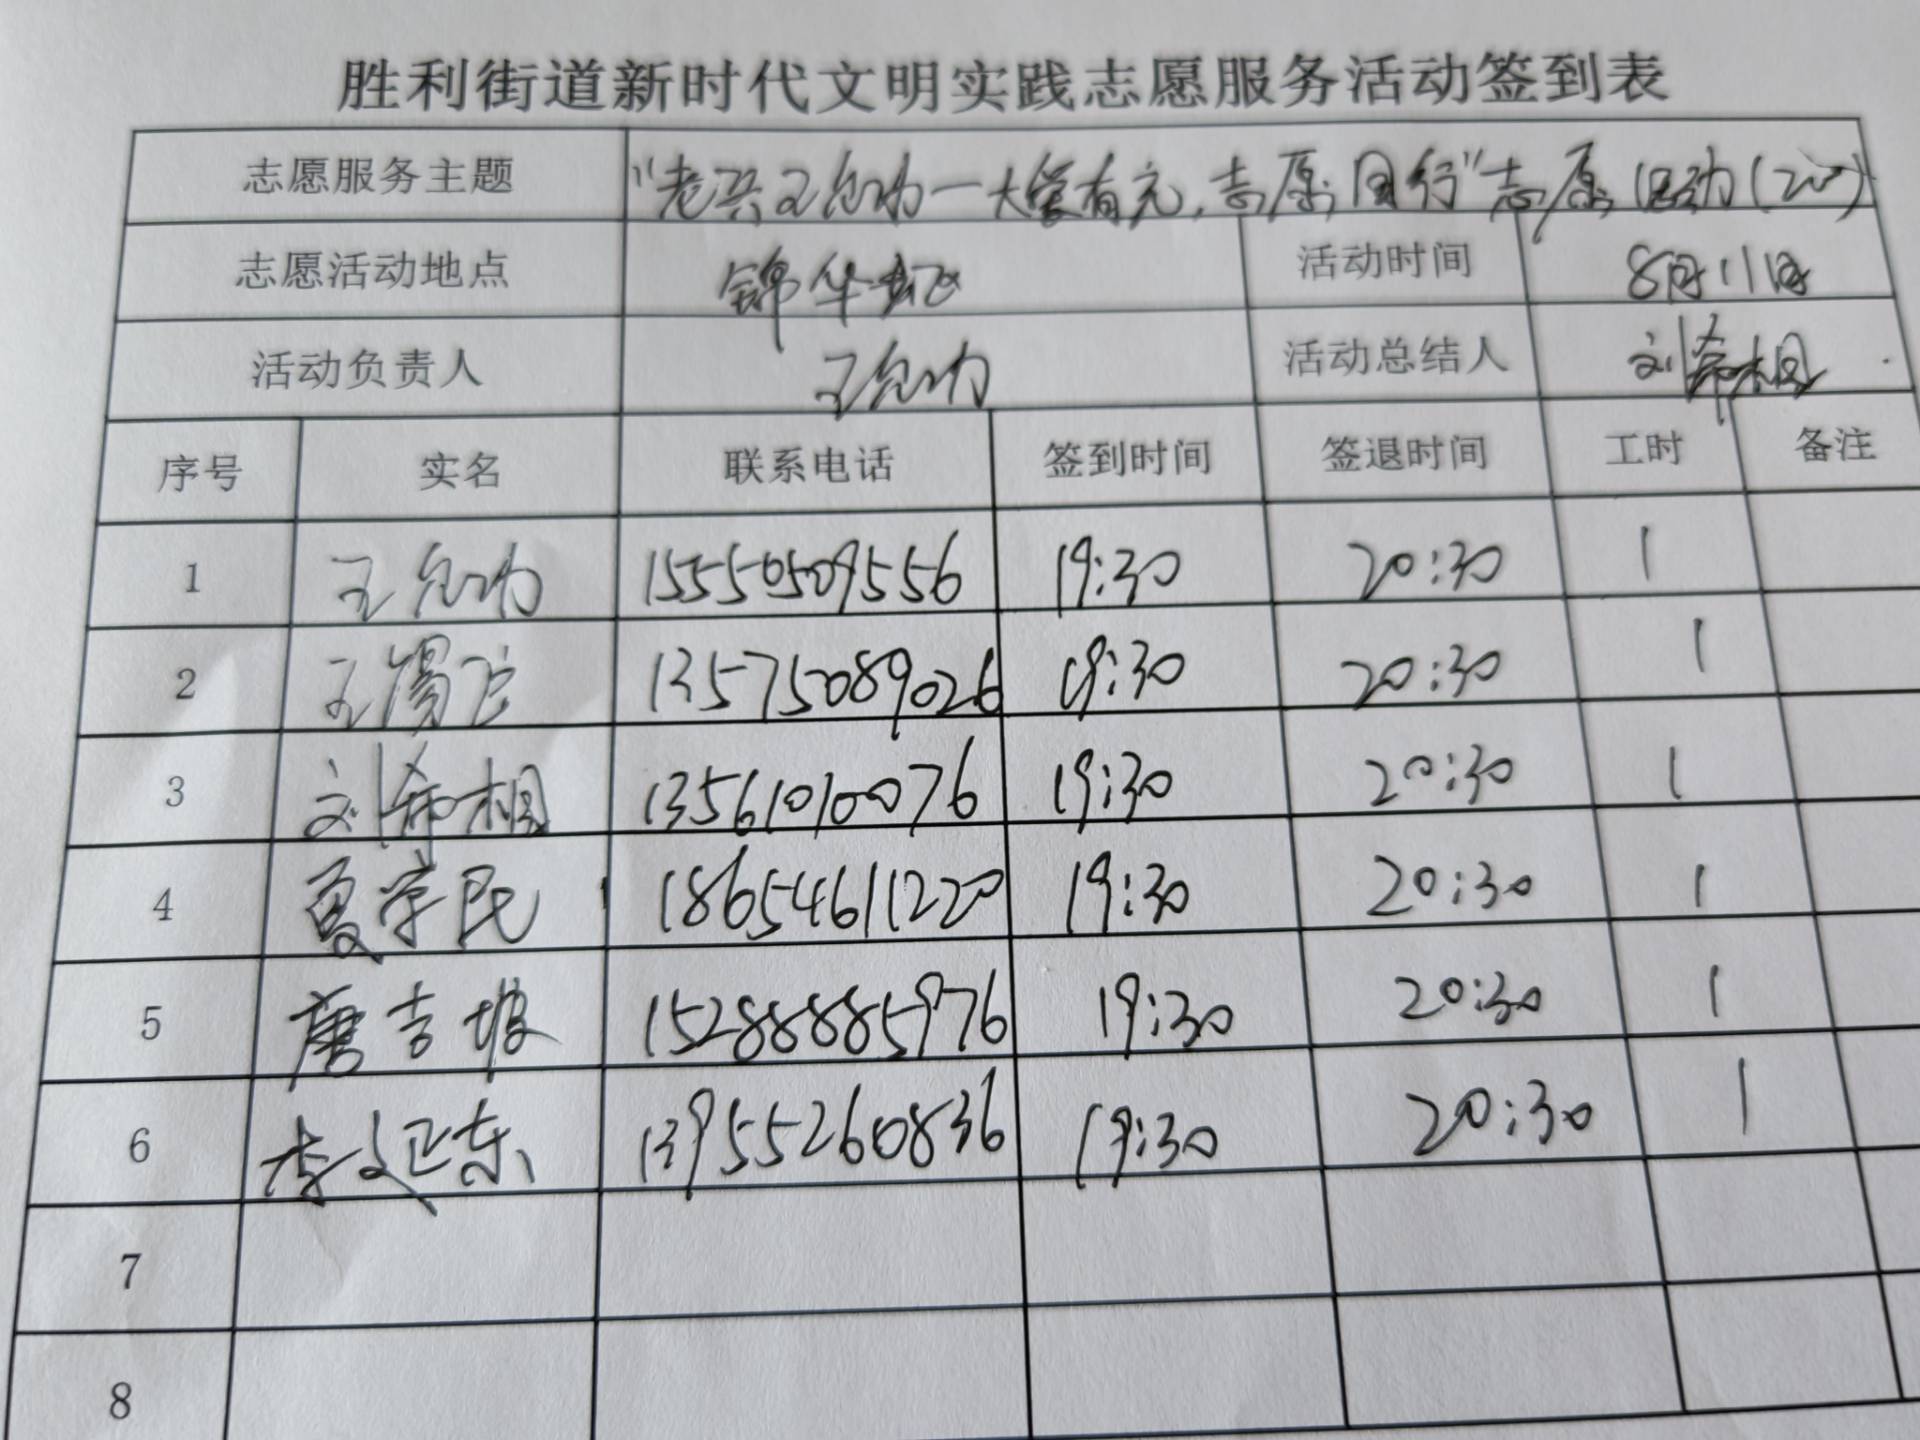 胜利街道新时代文明实践志愿服务活动签到表
志愿服务主题 "老兵王允功一大爱有元,志愿同行"志愿活动(200)
志愿活动地点 锦华 活动时间 8月11日
活动负责人 王允功 活动总结人 刘希桐
序号 实名 联系电话 签到时间 签退时间 工时 备注
1 王允功 15550509556 19:30 20:30 1
2 王 13575089026 19:30 20:30 1
3 刘希桐 13561010076 19:30 20:30 1
4 夏学民 18654611220 19:30 20:30 1
5 唐吉坡 15288885976 19:30 20:30 1
6 李文卫东 13955260836 19:30 20:30 1
7
8